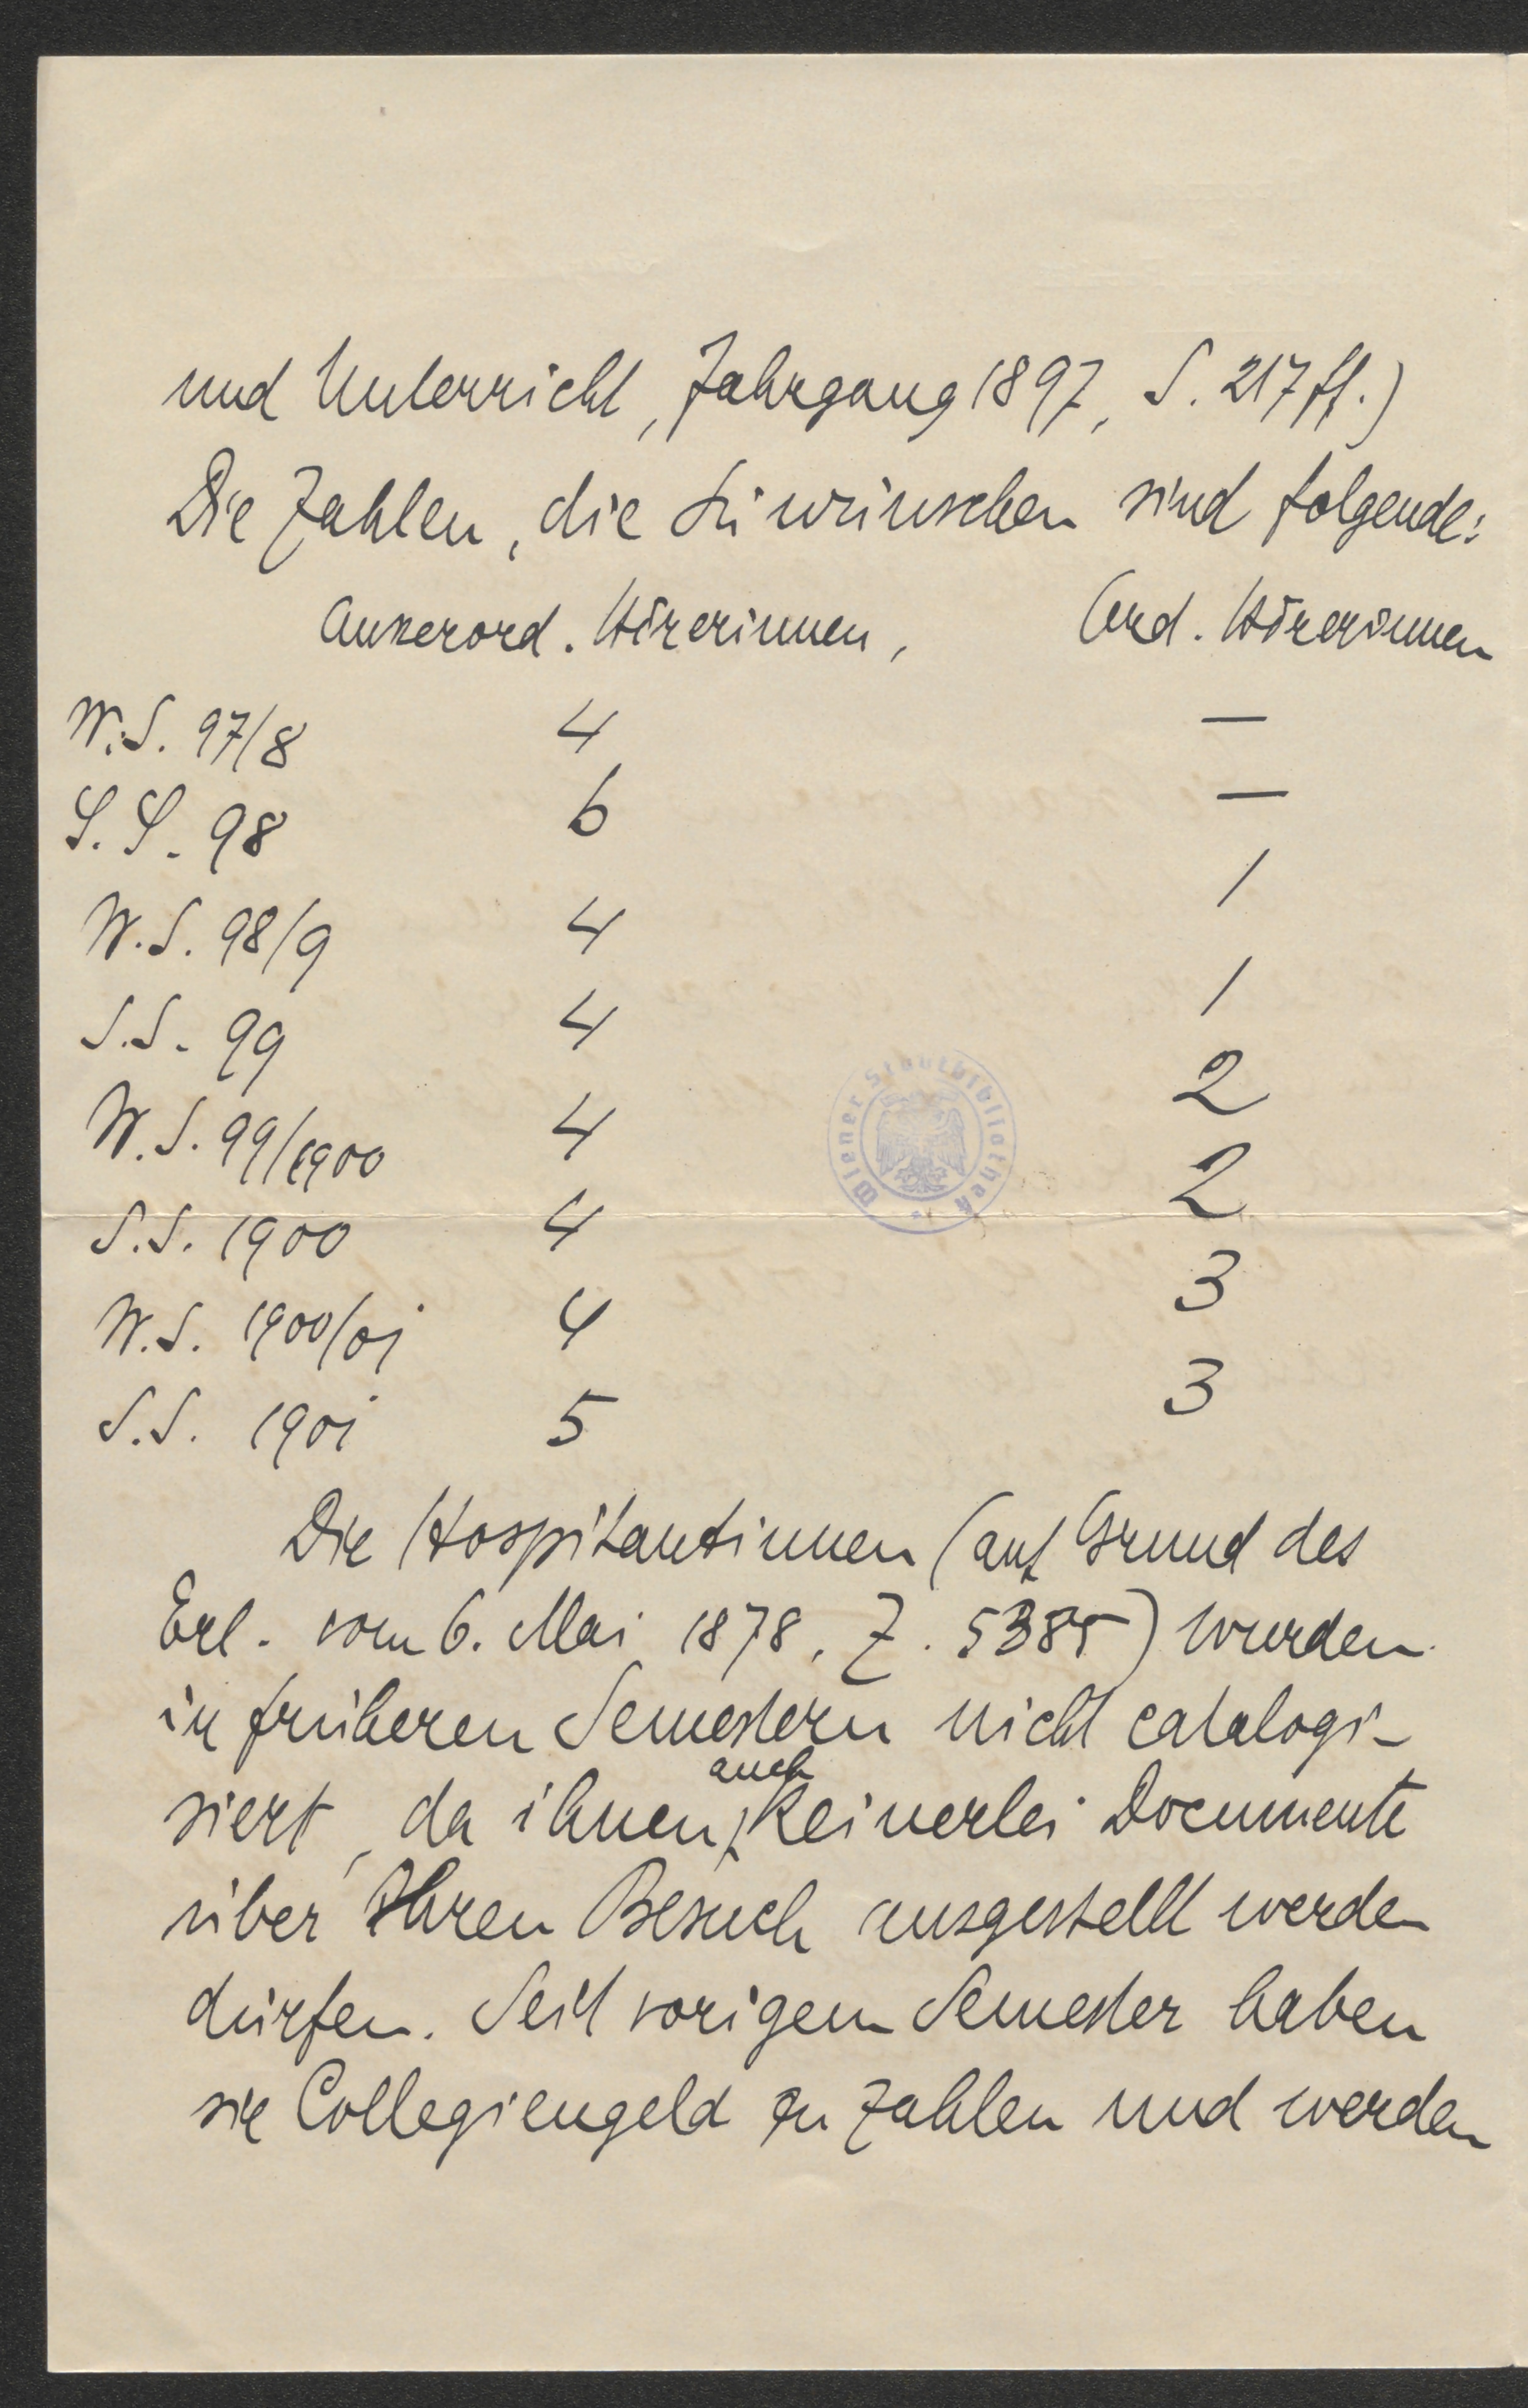 und Unterricht, Jahrgang 1897, S. 217 ff.)
Die Zahlen, die Sie wünschen sind folgende:
Ausserord. Hörerinnen, Ord. Hörerinnen
W.S. 97/8 4 —
S.S. 98 6 —
W.S. 98/9 4 1
S.S. 99 4 1
W.S. 99/1900 4 2
S.S. 1900 4 2
W.S. 1900/01 4 3
S.S. 1901 5 3
Wiener Stadtbibliothek
Die Hospitantinnen (auf Grund des
Erl. vom 6. Mai 1878, Z. 5385) wurden
in früheren Semestern nicht catalogi-
siert, da ihnen auch keinerlei Documente
über Ihren Besuch ausgestellt werden
dürfen. Seit vorigem Semester haben
sie Collegiengeld zu zahlen und werden